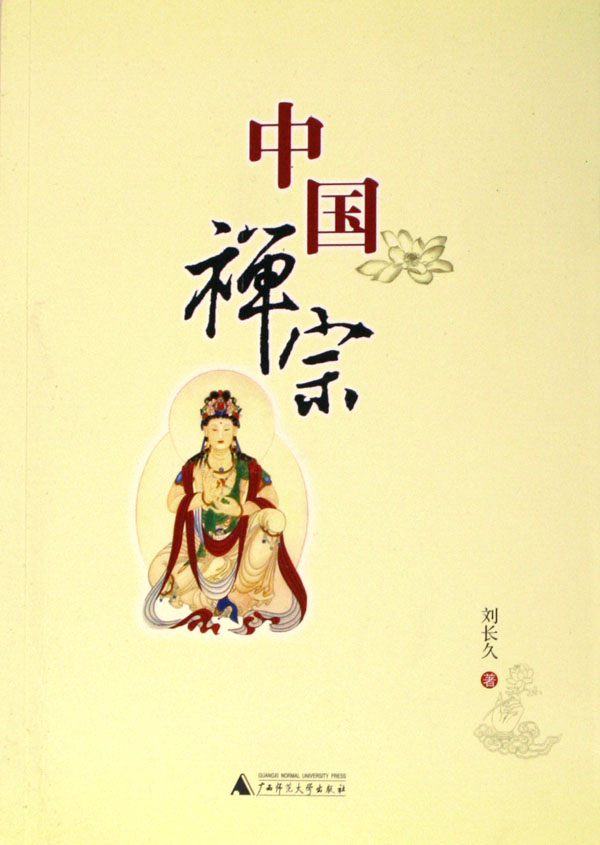 中国
禅宗
刘长久
著
GUANGXI NORMAL UNIVERSITY PRESS
广西师范大学出版社